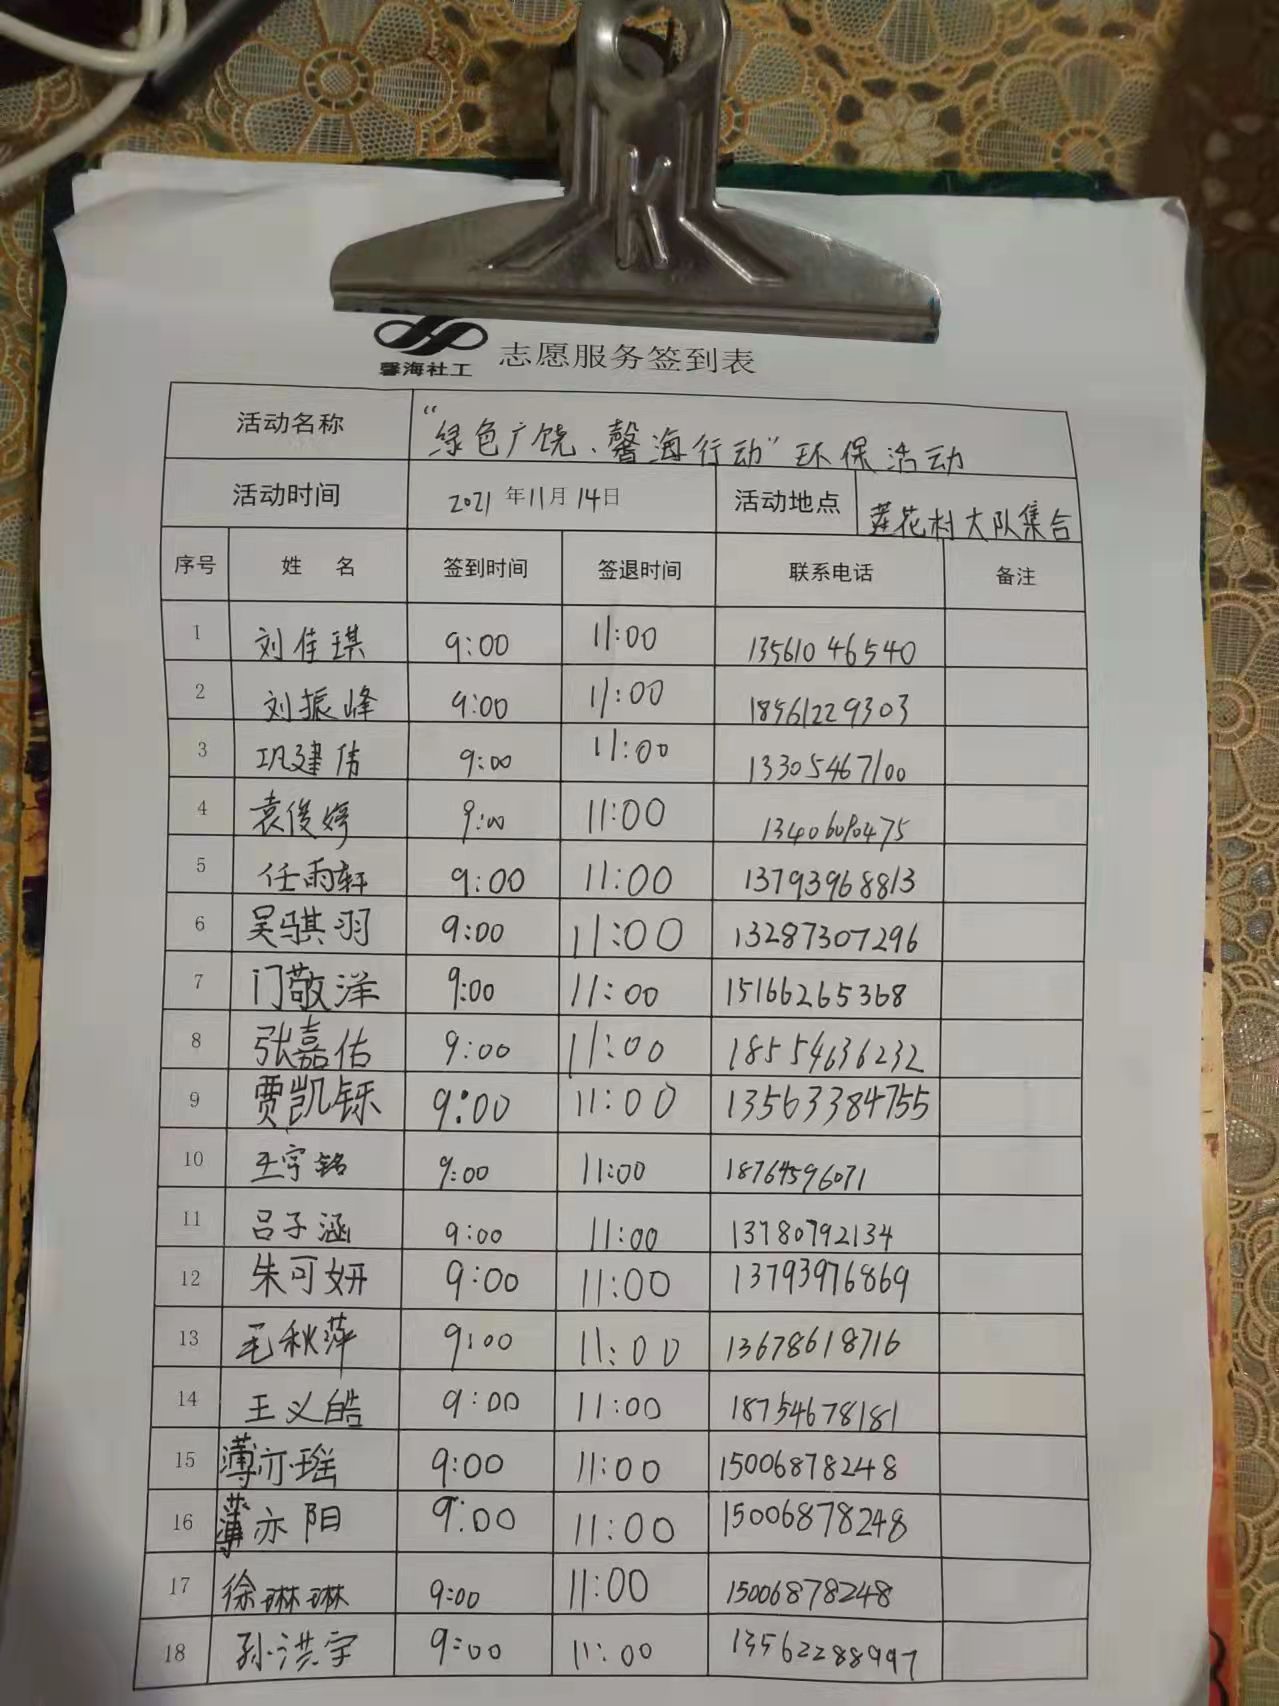 K
馨海社工 志愿服务签到表
活动名称 “绿色广饶、馨海行动”环保活动
活动时间 2021年11月14日 活动地点 莲花村大队集合
序号 姓 名 签到时间 签退时间 联系电话 备注
1 刘佳琪 9:00 11:00 13561046540
2 刘振峰 9:00 11:00 18561229303
3 巩建伟 9:00 11:00 13305467100
4 袁俊婷 9:00 11:00
5 任雨轩 9:00 11:00 13793968813
6 吴骐羽 9:00 11:00 13287307296
7 门敬洋 9:00 11:00 15166265368
8 张嘉佑 9:00 11:00 18554636232
9 贾凯铄 9:00 11:00 13563384755
10 王宇铭 9:00 11:00 18764596071
11 吕子涵 9:00 11:00 13780792134
12 朱可妍 9:00 11:00 13793976869
13 毛秋萍 9:00 11:00 13678618716
14 王义皓 9:00 11:00 18754678181
15 薄亦瑶 9:00 11:00 15006878248
16 薄亦阳 9:00 11:00 15006878248
17 徐琳琳 9:00 11:00 15006878248
18 孙洪宇 9:00 11:00 13562288997